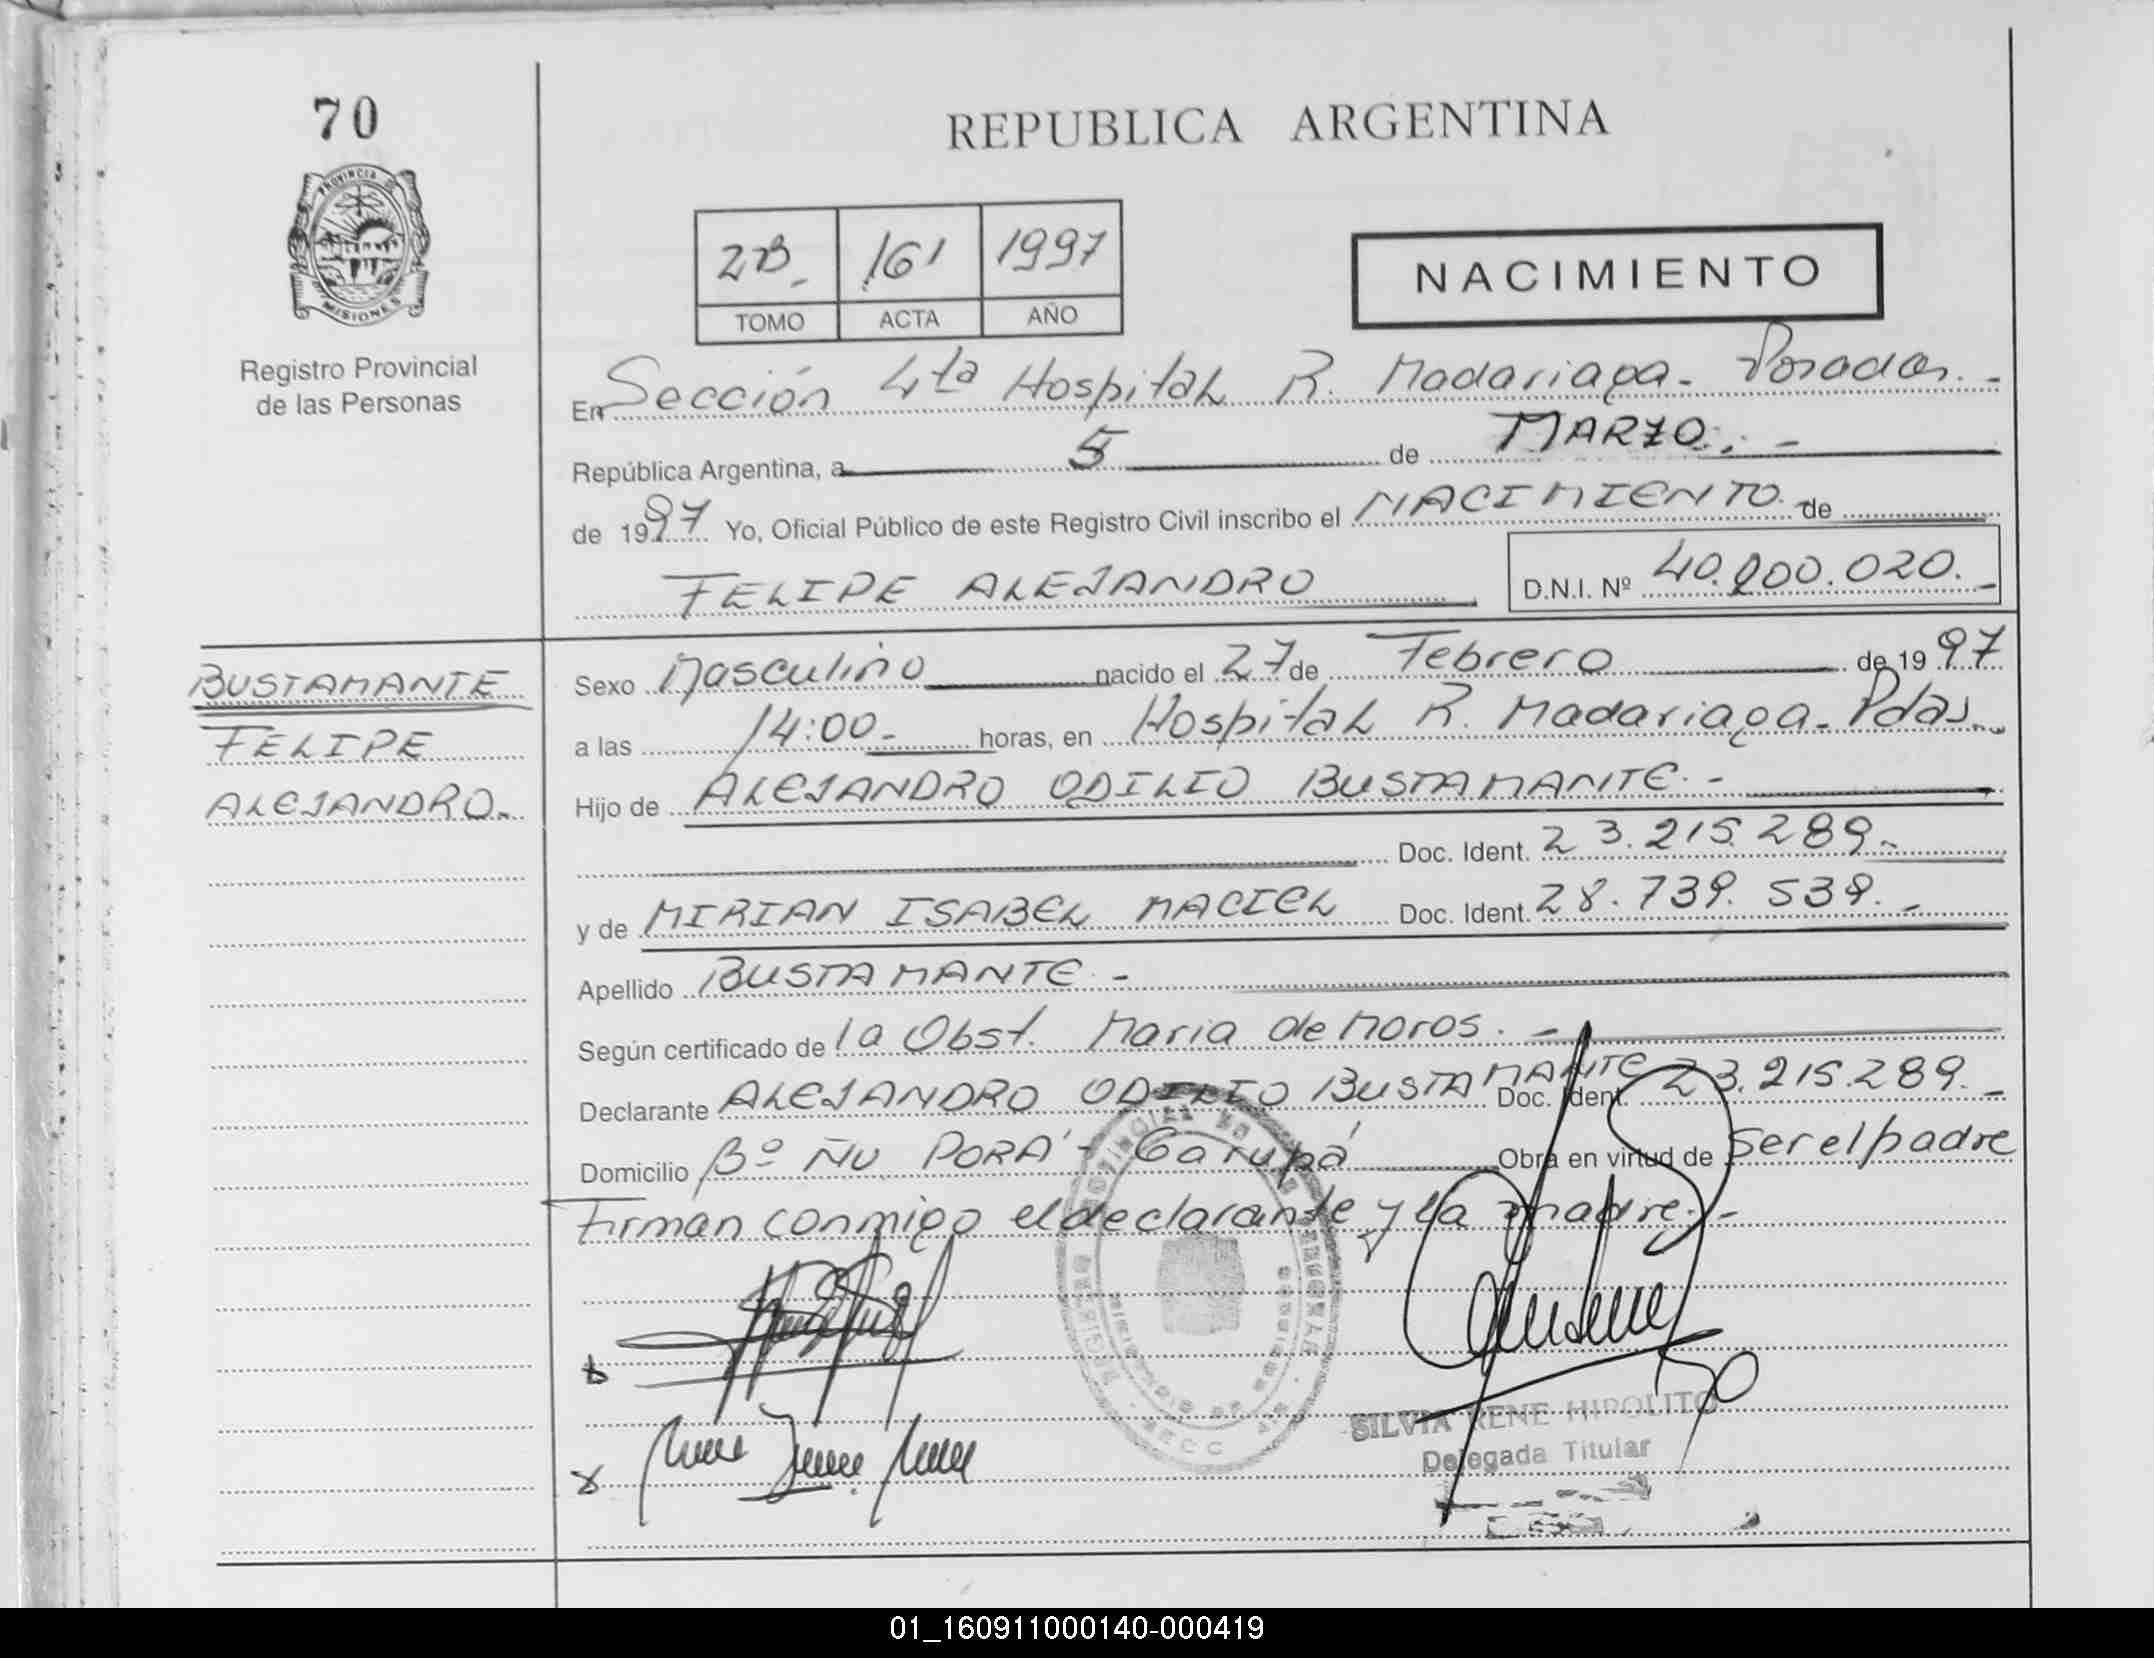 70
REPUBLICA ARGENTINA
PROVINCIA DE
MISIONES
Registro Provincial
de las Personas
2B - 161 1997
TOMO ACTA AÑO
NACIMIENTO
En Sección 4ta Hospital R. Madariaga - Posadas. -
República Argentina, a 5 de MARZO. -
de 1997 Yo, Oficial Público de este Registro Civil inscribo el NACIMIENTO de
FELIPE ALEJANDRO D.N.I. Nº 40.200.020. -
BUSTAMANTE
FELIPE
ALEJANDRO. -
Sexo Masculino nacido el 27 de Febrero de 1997
a las 14:00 - horas, en Hospital R. Madariaga - Pdas. -
Hijo de ALEJANDRO ODILIO BUSTAMANTE. -
Doc. Ident. 23.215.289. -
y de MIRIAN ISABEL MACIEL Doc. Ident. 28.739.539. -
Apellido BUSTAMANTE. -
Según certificado de la Obst. Maria de Moros. -
Declarante ALEJANDRO ODILIO BUSTAMANTE Doc. Ident. 23.215.289. -
Domicilio Bº ÑU PORA' - Garupá Obra en virtud de Ser el padre
Firman conmigo el declarante y la madre. -
SILVIA RENE HIPOLITO
Delegada Titular
01_160911000140-000419